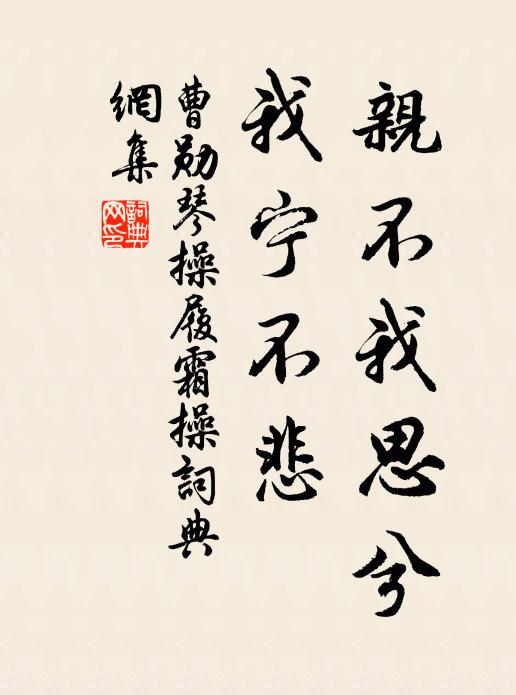 親不我思兮
我宁不悲
曹勛琴操履霜操詞典
網集
詞典網印